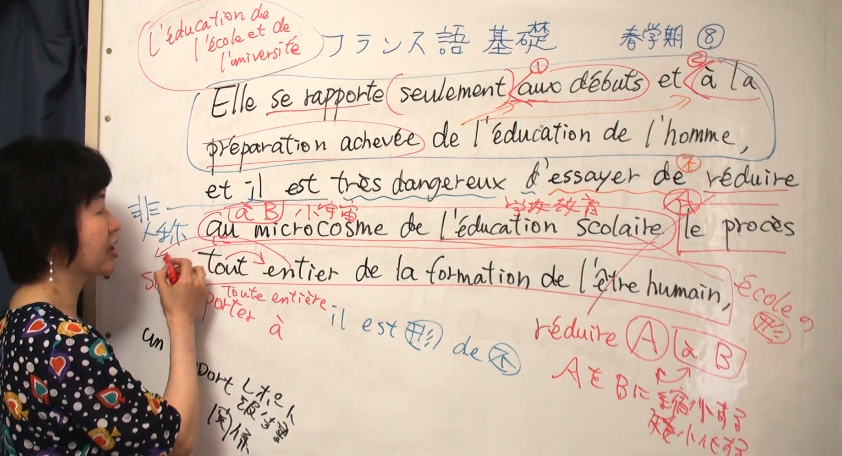 L'éducation de
l'école et de
l'université
フランス語 基礎 春学期 ⑧
① ②
Elle se rapporte (seulement) aux débuts et à la
préparation achevée de l'éducation de l'homme,
et il est très dangereux d'essayer de réduire
不
非人称
à B 小宇宙 学校教育 A
au microcosme de l'éducation scolaire le procès
tout entier de la formation de l'être humain,
toute entière
porter à
il est 形 de 不
école の 形
réduire A à B
AをBに縮小する
小化する
un
port レポート
関係